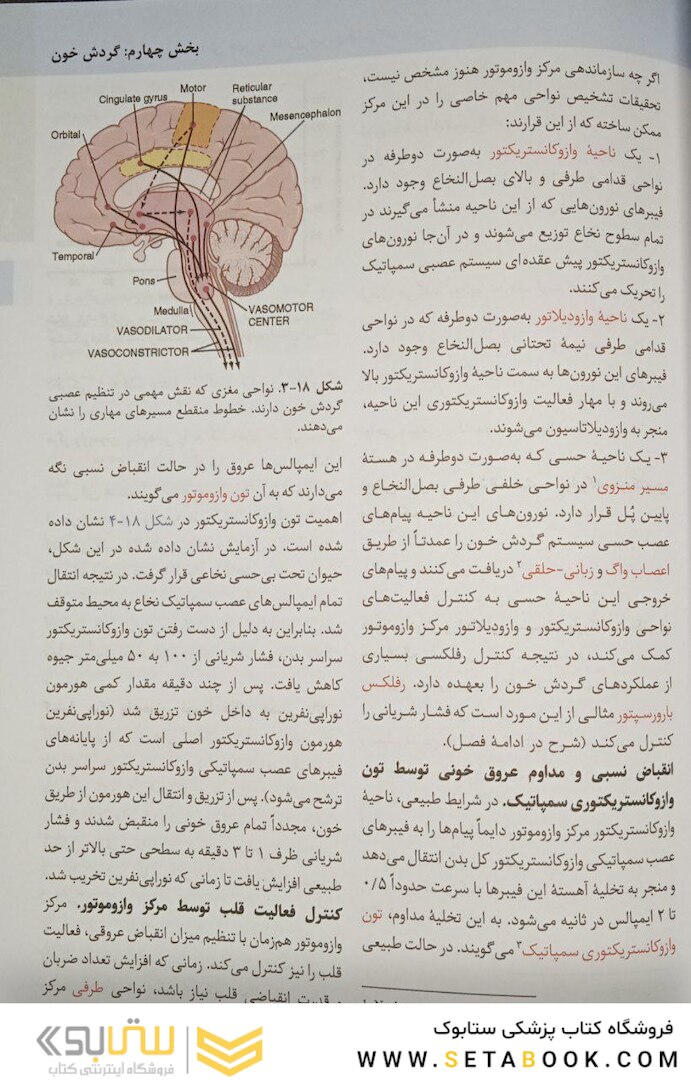 بخش چهارم: گردش خون
اگر چه سازماندهی مرکز وازوموتور هنوز مشخص نیست،
تحقیقات تشخیص نواحی مهم خاصی را در این مرکز
ممکن ساخته که از این قرارند:
۱- یک ناحیهٔ وازوکانستریکتور به‌صورت دوطرفه در
نواحی قدامی طرفی و بالای بصل‌النخاع وجود دارد.
فیبرهای نورون‌هایی که از این ناحیه منشأ می‌گیرند در
تمام سطوح نخاع توزیع می‌شوند و در آن‌جا نورون‌های
وازوکانستریکتور پیش عقده‌ای سیستم عصبی سمپاتیک
را تحریک می‌کنند.
۲- یک ناحیهٔ وازودیلاتور به‌صورت دوطرفه که در نواحی
قدامی طرفی نیمهٔ تحتانی بصل‌النخاع وجود دارد.
فیبرهای این نورون‌ها به سمت ناحیهٔ وازوکانستریکتور بالا
می‌روند و با مهار فعالیت وازوکانستریکتوری این ناحیه،
منجر به وازودیلاتاسیون می‌شوند.
۳- یک ناحیهٔ حسی که به‌صورت دوطرفه در هستهٔ
مسیر منزوی۱ در نواحی خلفی طرفی بصل‌النخاع و
پایین پُل قرار دارد. نورون‌های این ناحیه پیام‌های
عصب حسی سیستم گردش خون را عمدتاً از طریق
اعصاب واگ و زبانی-حلقی۲ دریافت می‌کنند و پیام‌های
خروجی این ناحیهٔ حسی به کنترل فعالیت‌های
نواحی وازوکانستریکتور و وازودیلاتور مرکز وازوموتور
کمک می‌کند، در نتیجه کنترل رفلکسی بسیاری
از عملکردهای گردش خون را بعهده دارد. رفلکس
بارورسپتور مثالی از این مورد است که فشار شریانی را
کنترل می‌کند (شرح در ادامهٔ فصل).
انقباض نسبی و مداوم عروق خونی توسط تون
وازوکانستریکتوری سمپاتیک. در شرایط طبیعی، ناحیهٔ
وازوکانستریکتور مرکز وازوموتور دایماً پیام‌ها را به فیبرهای
عصب سمپاتیکی وازوکانستریکتور کل بدن انتقال می‌دهد
و منجر به تخلیهٔ آهستهٔ این فیبرها با سرعت حدوداً ۰/۵
تا ۲ ایمپالس در ثانیه می‌شود. به این تخلیهٔ مداوم، تون
وازوکانستریکتوری سمپاتیک۳ می‌گویند. در حالت طبیعی
Cingulate gyrus
Motor
Reticular
substance
Mesencephalon
Orbital
Temporal
Pons
Medulla
VASOMOTOR
CENTER
VASODILATOR
VASOCONSTRICTOR
شکل ۱۸-۳. نواحی مغزی که نقش مهمی در تنظیم عصبی
گردش خون دارند. خطوط منقطع مسیرهای مهاری را نشان
می‌دهند.
این ایمپالس‌ها عروق را در حالت انقباض نسبی نگه
می‌دارند که به آن تون وازوموتور می‌گویند.
اهمیت تون وازوکانستریکتور در شکل ۱۸-۴ نشان داده
شده است. در آزمایش نشان داده شده در این شکل،
حیوان تحت بی‌حسی نخاعی قرار گرفت. در نتیجه انتقال
تمام ایمپالس‌های عصب سمپاتیک نخاع به محیط متوقف
شد. بنابراین به دلیل از دست رفتن تون وازوکانستریکتور
سراسر بدن، فشار شریانی از ۱۰۰ به ۵۰ میلی‌متر جیوه
کاهش یافت. پس از چند دقیقه مقدار کمی هورمون
نوراپی‌نفرین به داخل خون تزریق شد (نوراپی‌نفرین
هورمون وازوکانستریکتور اصلی است که از پایانه‌های
فیبرهای عصب سمپاتیکی وازوکانستریکتور سراسر بدن
ترشح می‌شود). پس از تزریق و انتقال این هورمون از طریق
خون، مجدداً تمام عروق خونی را منقبض شدند و فشار
شریانی ظرف ۱ تا ۳ دقیقه به سطحی حتی بالاتر از حد
طبیعی افزایش یافت تا زمانی که نوراپی‌نفرین تخریب شد.
کنترل فعالیت قلب توسط مرکز وازوموتور. مرکز
وازوموتور هم‌زمان با تنظیم میزان انقباض عروقی، فعالیت
قلب را نیز کنترل می‌کند. زمانی که افزایش تعداد ضربان
و قدرت انقباضی قلب نیاز باشد، نواحی طرفی مرکز
فروشگاه کتاب پزشکی ستابوک
WWW.SETABOOK.COM
ستابوک
فروشگاه اینترنتی کتاب